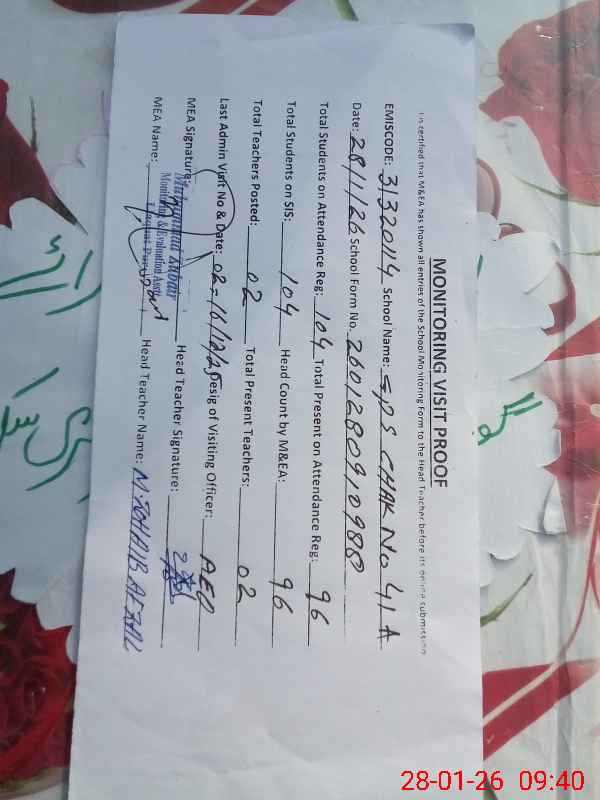 MONITORING VISIT PROOF
It is certified that M&EA has shown all entries of the School Monitoring Form to the Head Teacher before its online submission
EMISCODE: 31320114 School Name: GPS CHAK No 41 A
Date: 28/1/26 School Form No. 2601280910988
Total Students on Attendance Reg: 104 Total Present on Attendance Reg: 96
Total Students on SIS: 104 Head Count by M&EA: 96
Total Teachers Posted: 02 Total Present Teachers: 02
Last Admin Visit No & Date: 02=16/12/25 Desig of Visiting Officer: AEO
MEA Signature: Head Teacher Signature:
Muhammad Zubair
Monitoring & Evaluation Asstt
MEA Name: Head Teacher Name: M. ZOHAIB AFZAL
28-01-26 09:40